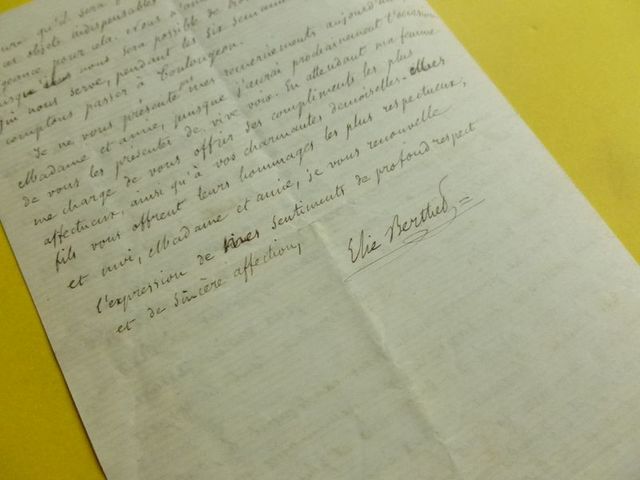 qu'il sera
ces objets indispensables
pour cela. Nous
nous sera possible de
qui nous serve, pendant les six semaines
comptons passer à Toulougeon.
Je ne vous présente pas mes remerciements aujourd'hui
Madame et amie, puisque j'aurai prochainement l'occasion
de vous les présenter de vive voix. En attendant ma femme
me charge de vous offrir ses compliments les plus
affectueux, ainsi qu'à vos charmantes demoiselles. Mes
fils vous offrent leurs hommages les plus respectueux,
et moi, Madame et amie, je vous renouvelle
l'expression de mes sentiments de profond respect
et de sincère affection,
Elie Berthet